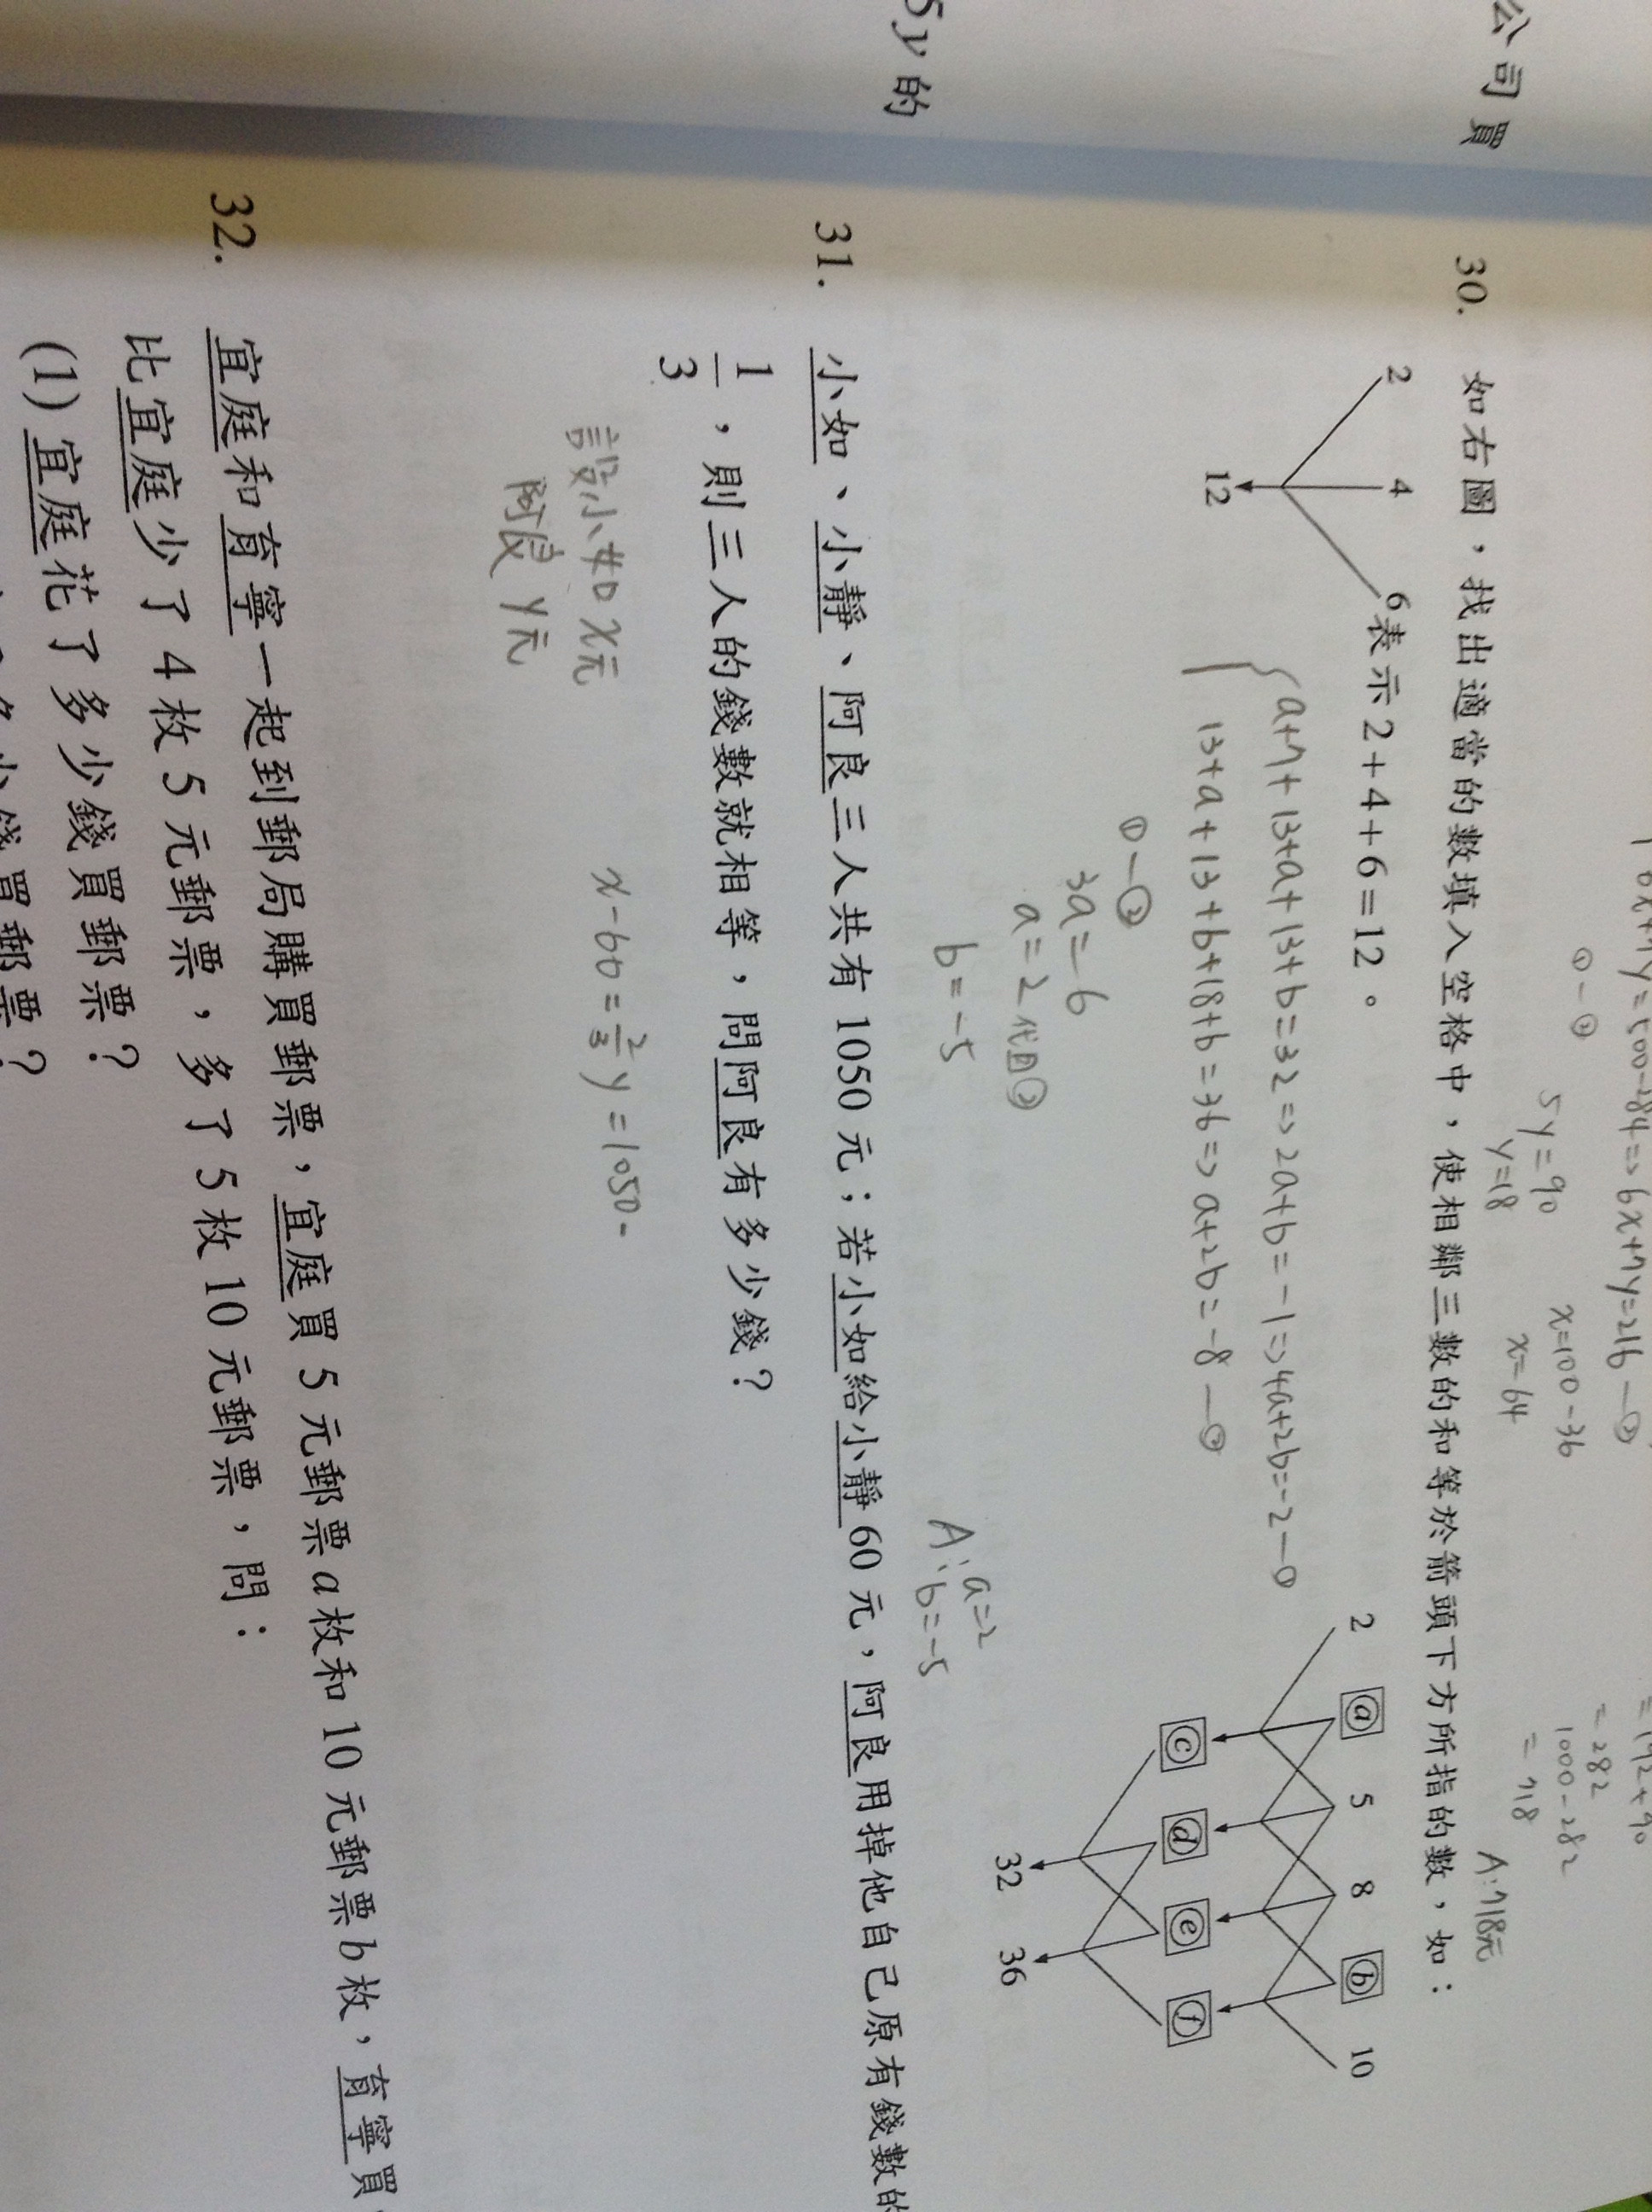 公司買
5y的
10x+7y=500-284=>6x+7y=216—②
①-②
5y=90
y=18
x=100-36
x=64
=192+90
=282
1000-282
=718
A:718元
30. 如右圖，找出適當的數填入空格中，使相鄰三數的和等於箭頭下方所指的數，如：
2 4 6表示2+4+6=12。
12
2 a 5 8 b 10
c d e f
32 36
a+7+13+a+13+b=32=>2a+b=-1=>4a+2b=-2—①
13+a+13+b+18+b=36=>a+2b=-8—②
①-②
3a=6
a=2代回②
b=-5
A:a=2
b=-5
31. 小如、小靜、阿良三人共有1050元；若小如給小靜60元，阿良用掉他自己原有錢數的
1/3，則三人的錢數就相等，問阿良有多少錢？
設小如x元
阿良y元
x-60=2/3y=1050-
32. 宜庭和育寧一起到郵局購買郵票，宜庭買5元郵票a枚和10元郵票b枚，育寧買
比宜庭少了4枚5元郵票，多了5枚10元郵票，問：
(1)宜庭花了多少錢買郵票？
多少錢買郵票？